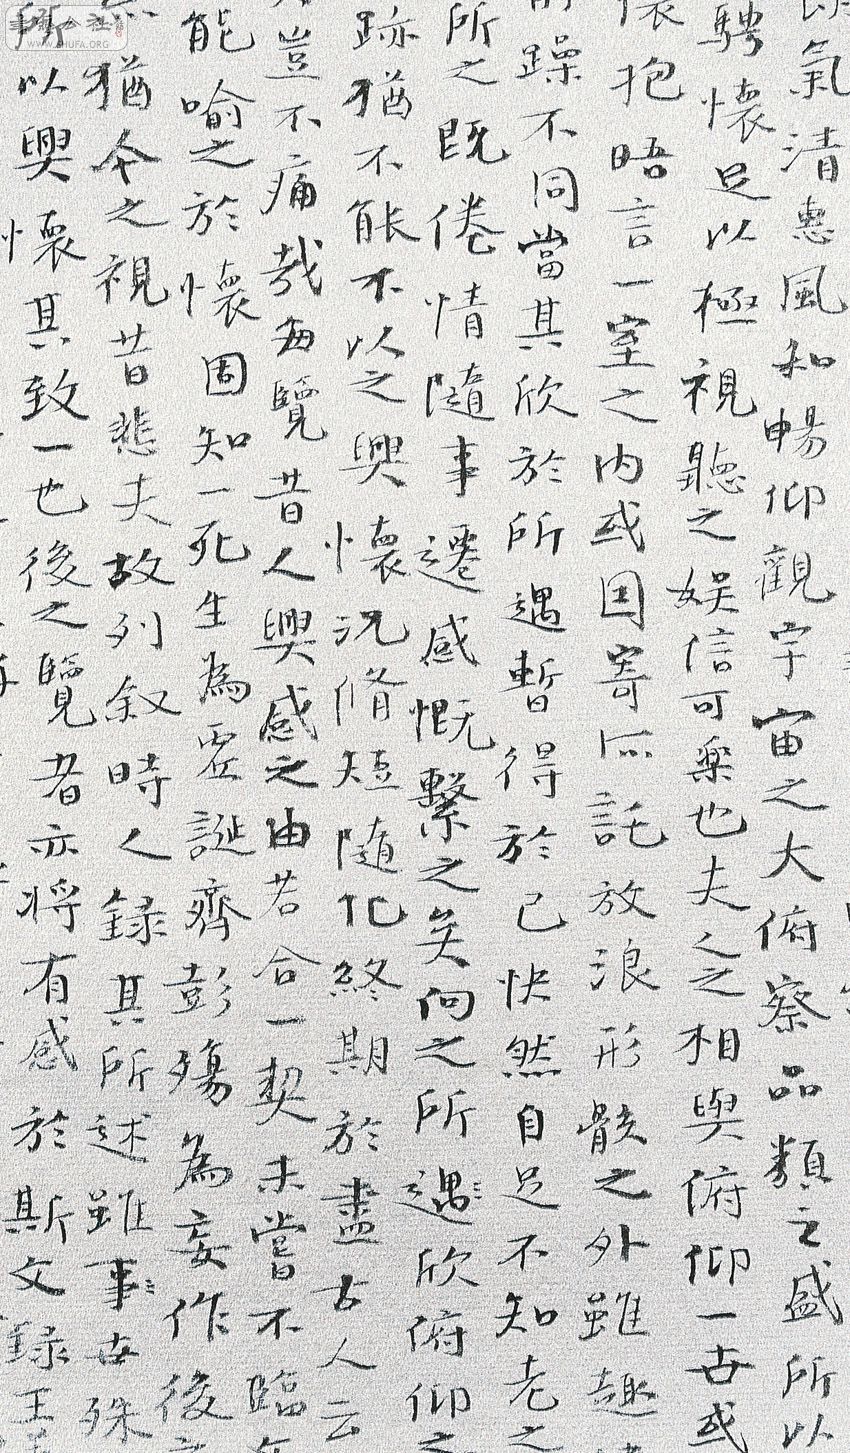 氣清惠風和暢仰觀宇宙之大俯察品類之盛所以
騁懷足以極視聽之娛信可樂也夫人之相與俯仰一世或
懷抱晤言一室之內或因寄所託放浪形骸之外雖趣
躁不同當其欣於所遇暫得於己快然自足不知老之
所之既倦情隨事遷感慨繫之矣向之所遇欣俯仰之
跡猶不能不以之興懷況脩短隨化終期於盡古人云
豈不痛哉每覽昔人興感之由若合一契未嘗不臨
能喻之於懷固知一死生為虛誕齊彭殤為妄作後之
猶今之視昔悲夫故列敘時人錄其所述雖事世殊
所以興懷其致一也後之覽者亦將有感於斯文錄王
書法公社
WWW.SHUFA.ORG